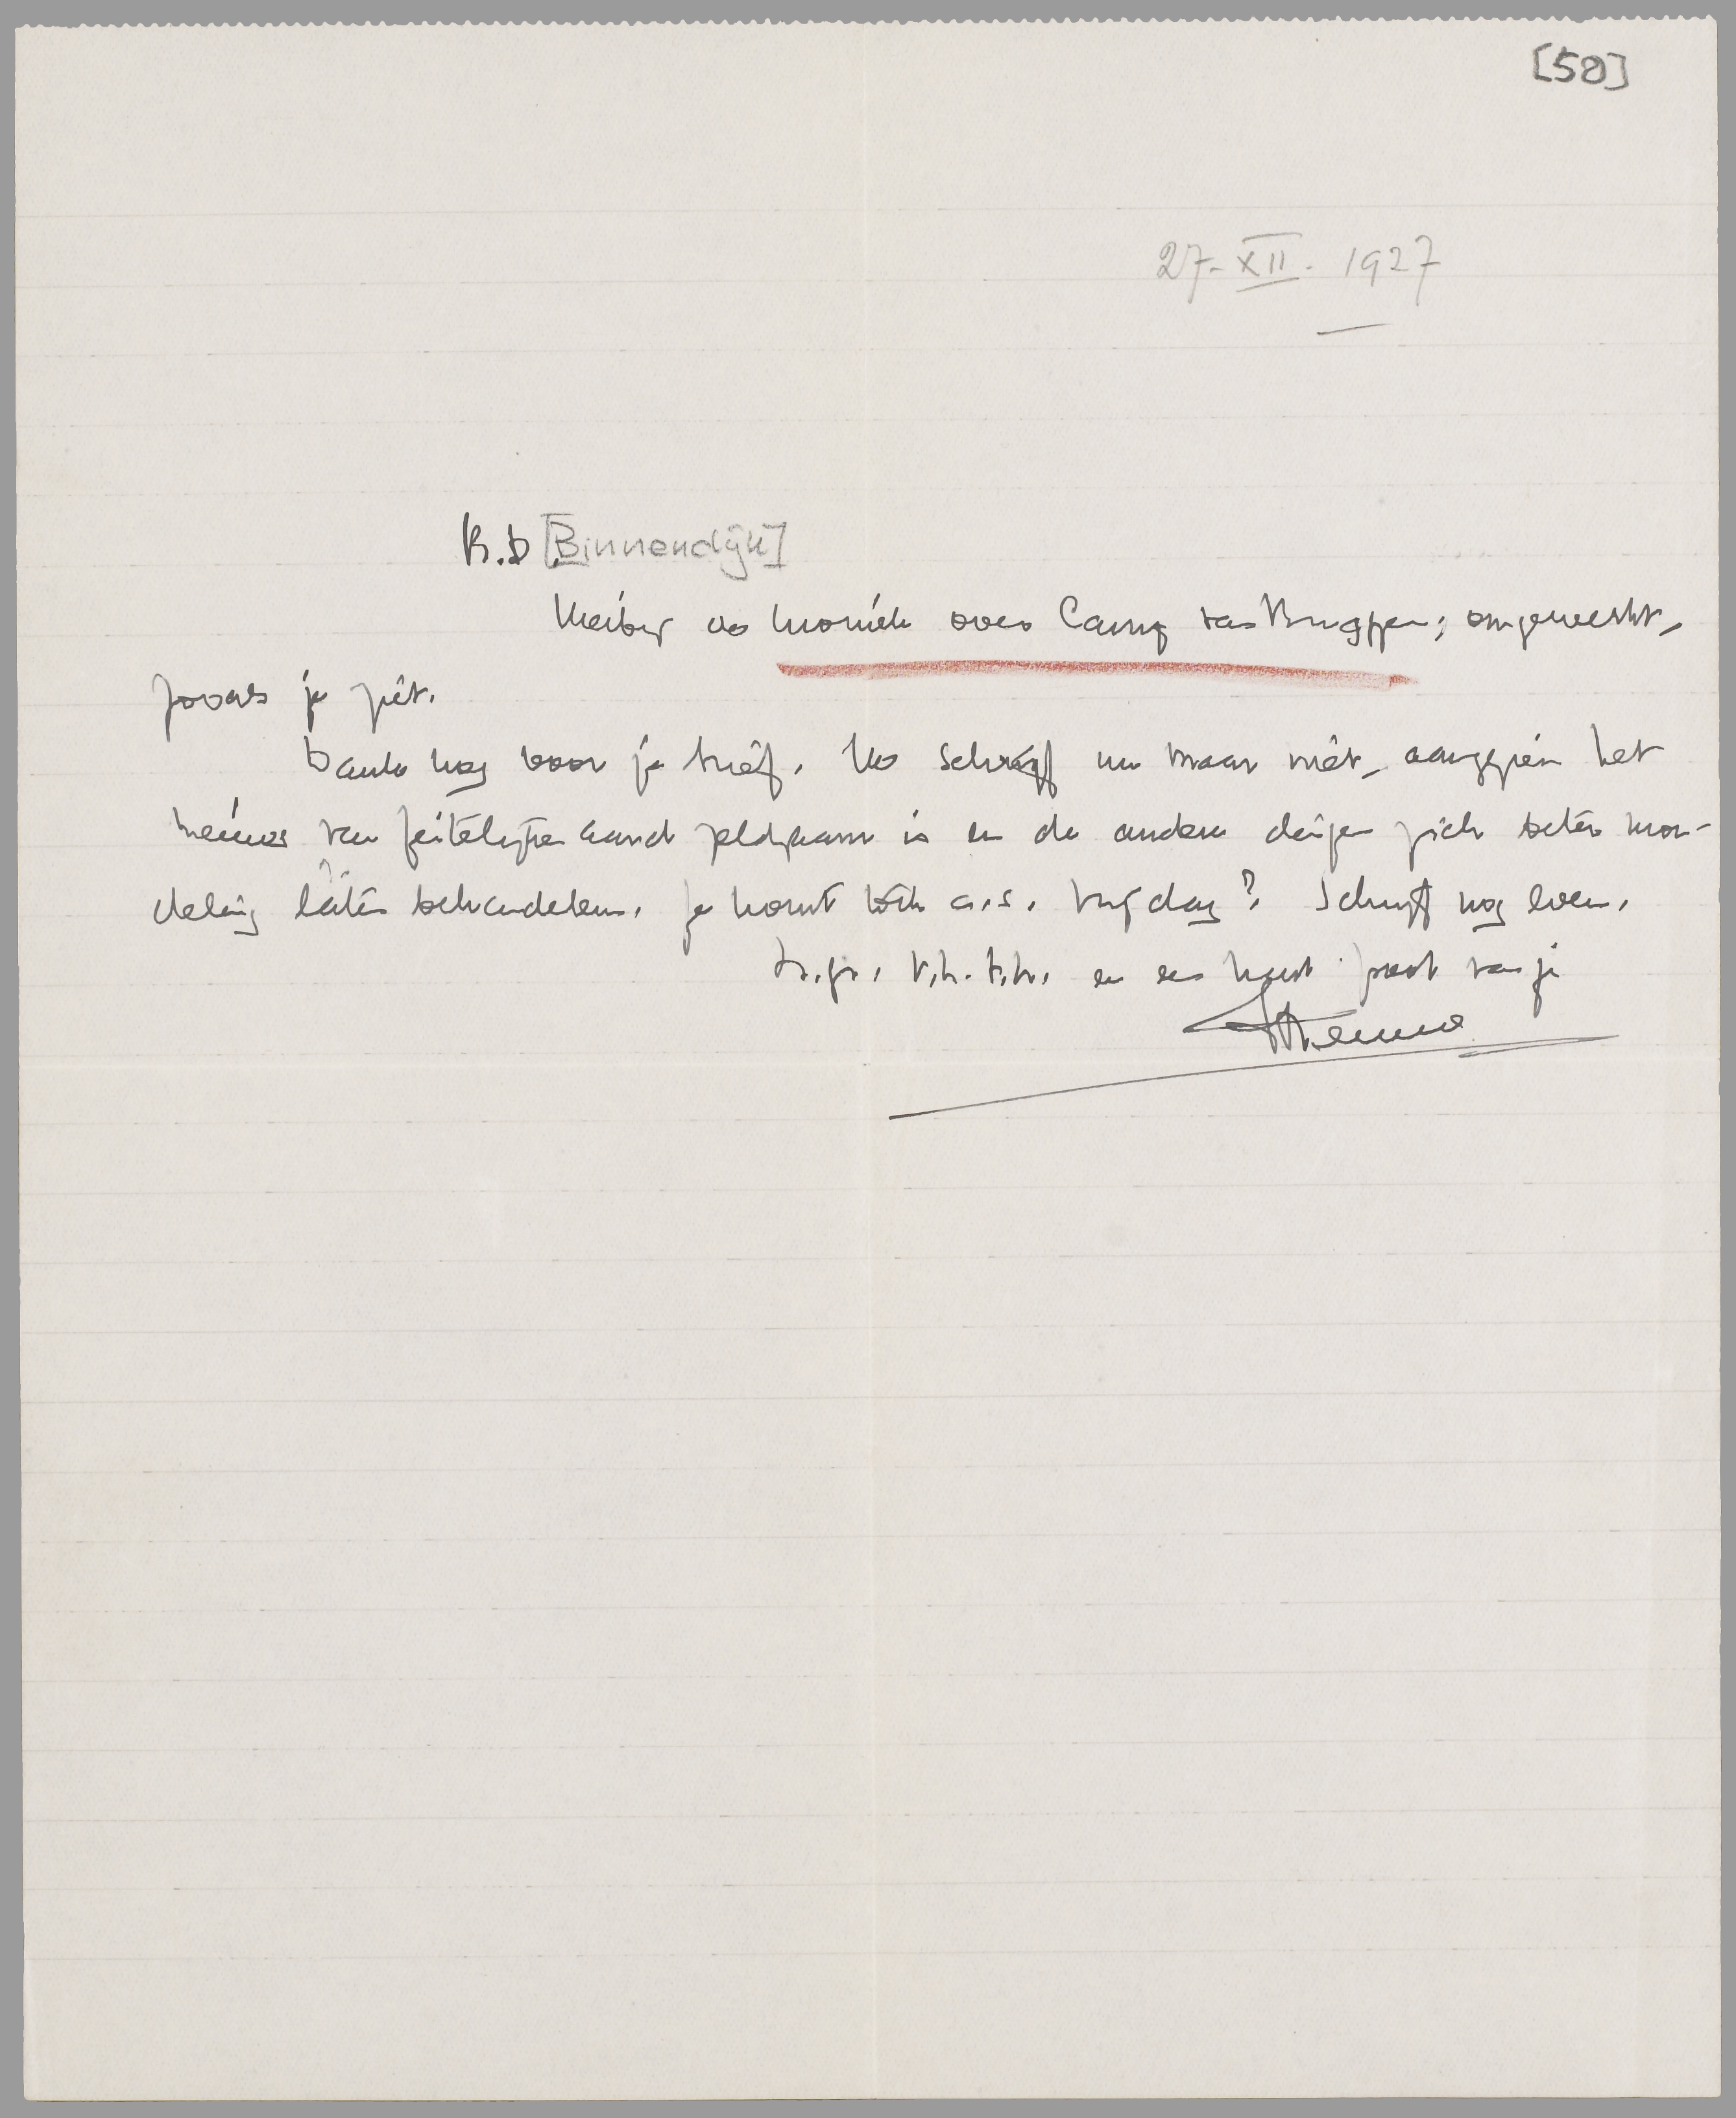 [50]
27-XII-1927
B.D. [Binnendijk]
Hierbij de kroniek over Carry van Bruggen; omgewerkt,
zooals je ziet.
Dank nog voor je brief. Ik schrijf nu maar niet, aangezien het
nieuws van feitelijken aard zeldzaam is en de andere dingen zich beter mon-
deling laten behandelen. Je komt toch a.s. Vrijdag? Schrijf nog even.
h.gr. v.h.t.h. en een hand poot van je
Menno